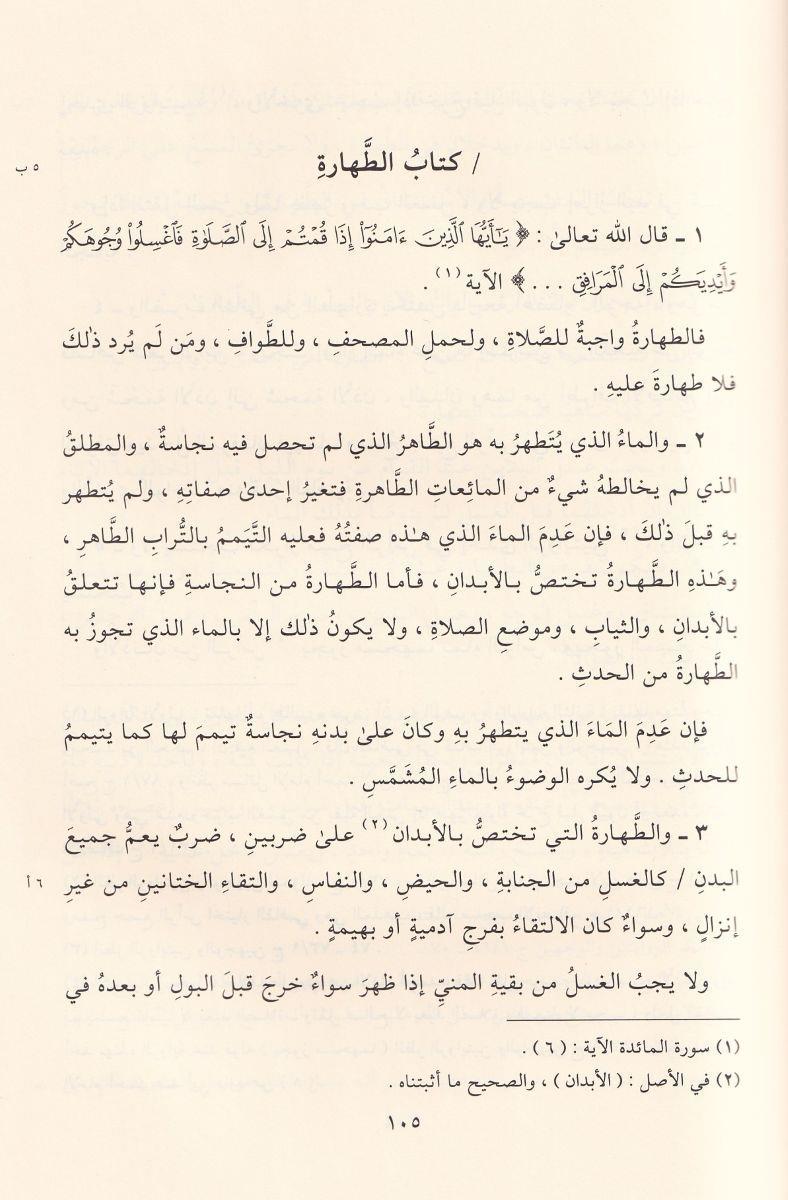 / كتابُ الطَّهارةِ
٥ ب
١ ـ قال الله تعالىٰ : ﴿ يَٰٓأَيُّهَا ٱلَّذِينَ ءَامَنُوٓا۟ إِذَا قُمۡتُمۡ إِلَى ٱلصَّلَوٰةِ فَٱغۡسِلُوا۟ وُجُوهَكُمۡ
وَأَيۡدِيَكُمۡ إِلَى ٱلۡمَرَافِقِ ... ﴾ الآية (١) .
فالطهارةُ واجبةٌ للصَّلاةِ ، ولحملِ المصحفِ ، وللطَّوافِ ، ومَن لَم يُرد ذٰلكَ
فلا طهارةَ عليهِ .
٢ ـ والماءُ الذي يُتَطهرُ به هو الطَّاهرُ الذي لم تحصل فيه نجاسةٌ ، والمطلقُ
الذي لم يخالطهُ شيءٌ من المائِعاتِ الطَّاهرةِ فتغيرُ إحدىٰ صفاتِهِ ، ولم يُتطهر
بهِ قبلَ ذٰلكَ ، فإن عَدِمَ الماءَ الذي هـٰذه صفتُهُ فعليه التَّيَممُ بالتُّرابِ الطَّاهرِ ،
وهَـٰذهِ الطَّهارةُ تختصُّ بالأبدانِ ، فأما الطَّهارةُ من النجاسةِ فإنها تتعلقُ
بالأبدانِ ، والثيابِ ، وموضعِ الصلاةِ ، ولا يكونُ ذٰلك إلا بالماء الذي تجوزُ به
الطَّهارةُ من الحدثِ .
فإن عَدِمَ المَاءَ الذي يتطهرُ بهِ وكانَ علىٰ بدنهِ نجاسةٌ تيممَ لها كما يتيممُ
للحدثِ . ولا يُكره الوضوءُ بالماءِ المُشَمَّسِ .
٣ ـ والطَّهارةُ التي تختصُّ بالأبدان (٢) علىٰ ضربينِ ، ضربٌ يعمُّ جميعَ
البدنِ / كالغسلِ من الجنابةِ ، والحيضِ ، والنفاسِ ، والتقاءِ الختانينِ من غيرِ
٦ أ
إنزالٍ ، وسواءٌ كان الالتقاءُ بفرجِ آدميةٍ أو بهيمةٍ .
ولا يجبُ الغسلُ من بقيةِ المنيِّ إذا ظهرَ سواءٌ خرجَ قبلَ البولِ أو بعدهُ في
(١) سورة المائدة الآية : ( ٦ ) .
(٢) في الأصل : ( الأبدان ) ، والصحيح ما أثبتناه .
١٠٥